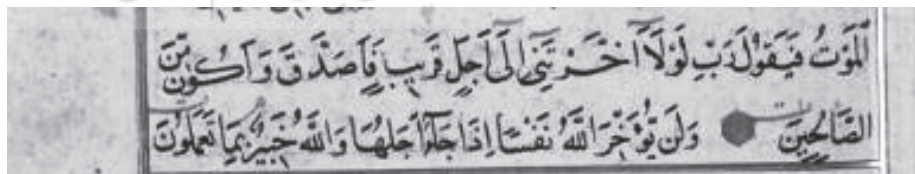 الْمَوْتُ فَيَقُولَ رَبِّ لَوْلَآ اَخَّرْتَنِى اِلَى اَجَلٍ قَرِيبٍ فَاَصَّدَّقَ وَاَكُونَ مِنَ
الصَّالِحِينَ وَلَنْ يُؤَخِّرَ اللّٰهُ نَفْسًا اِذَا جَآءَ اَجَلُهَا وَاللّٰهُ خَبِيرٌ بِمَا تَعْمَلُونَ